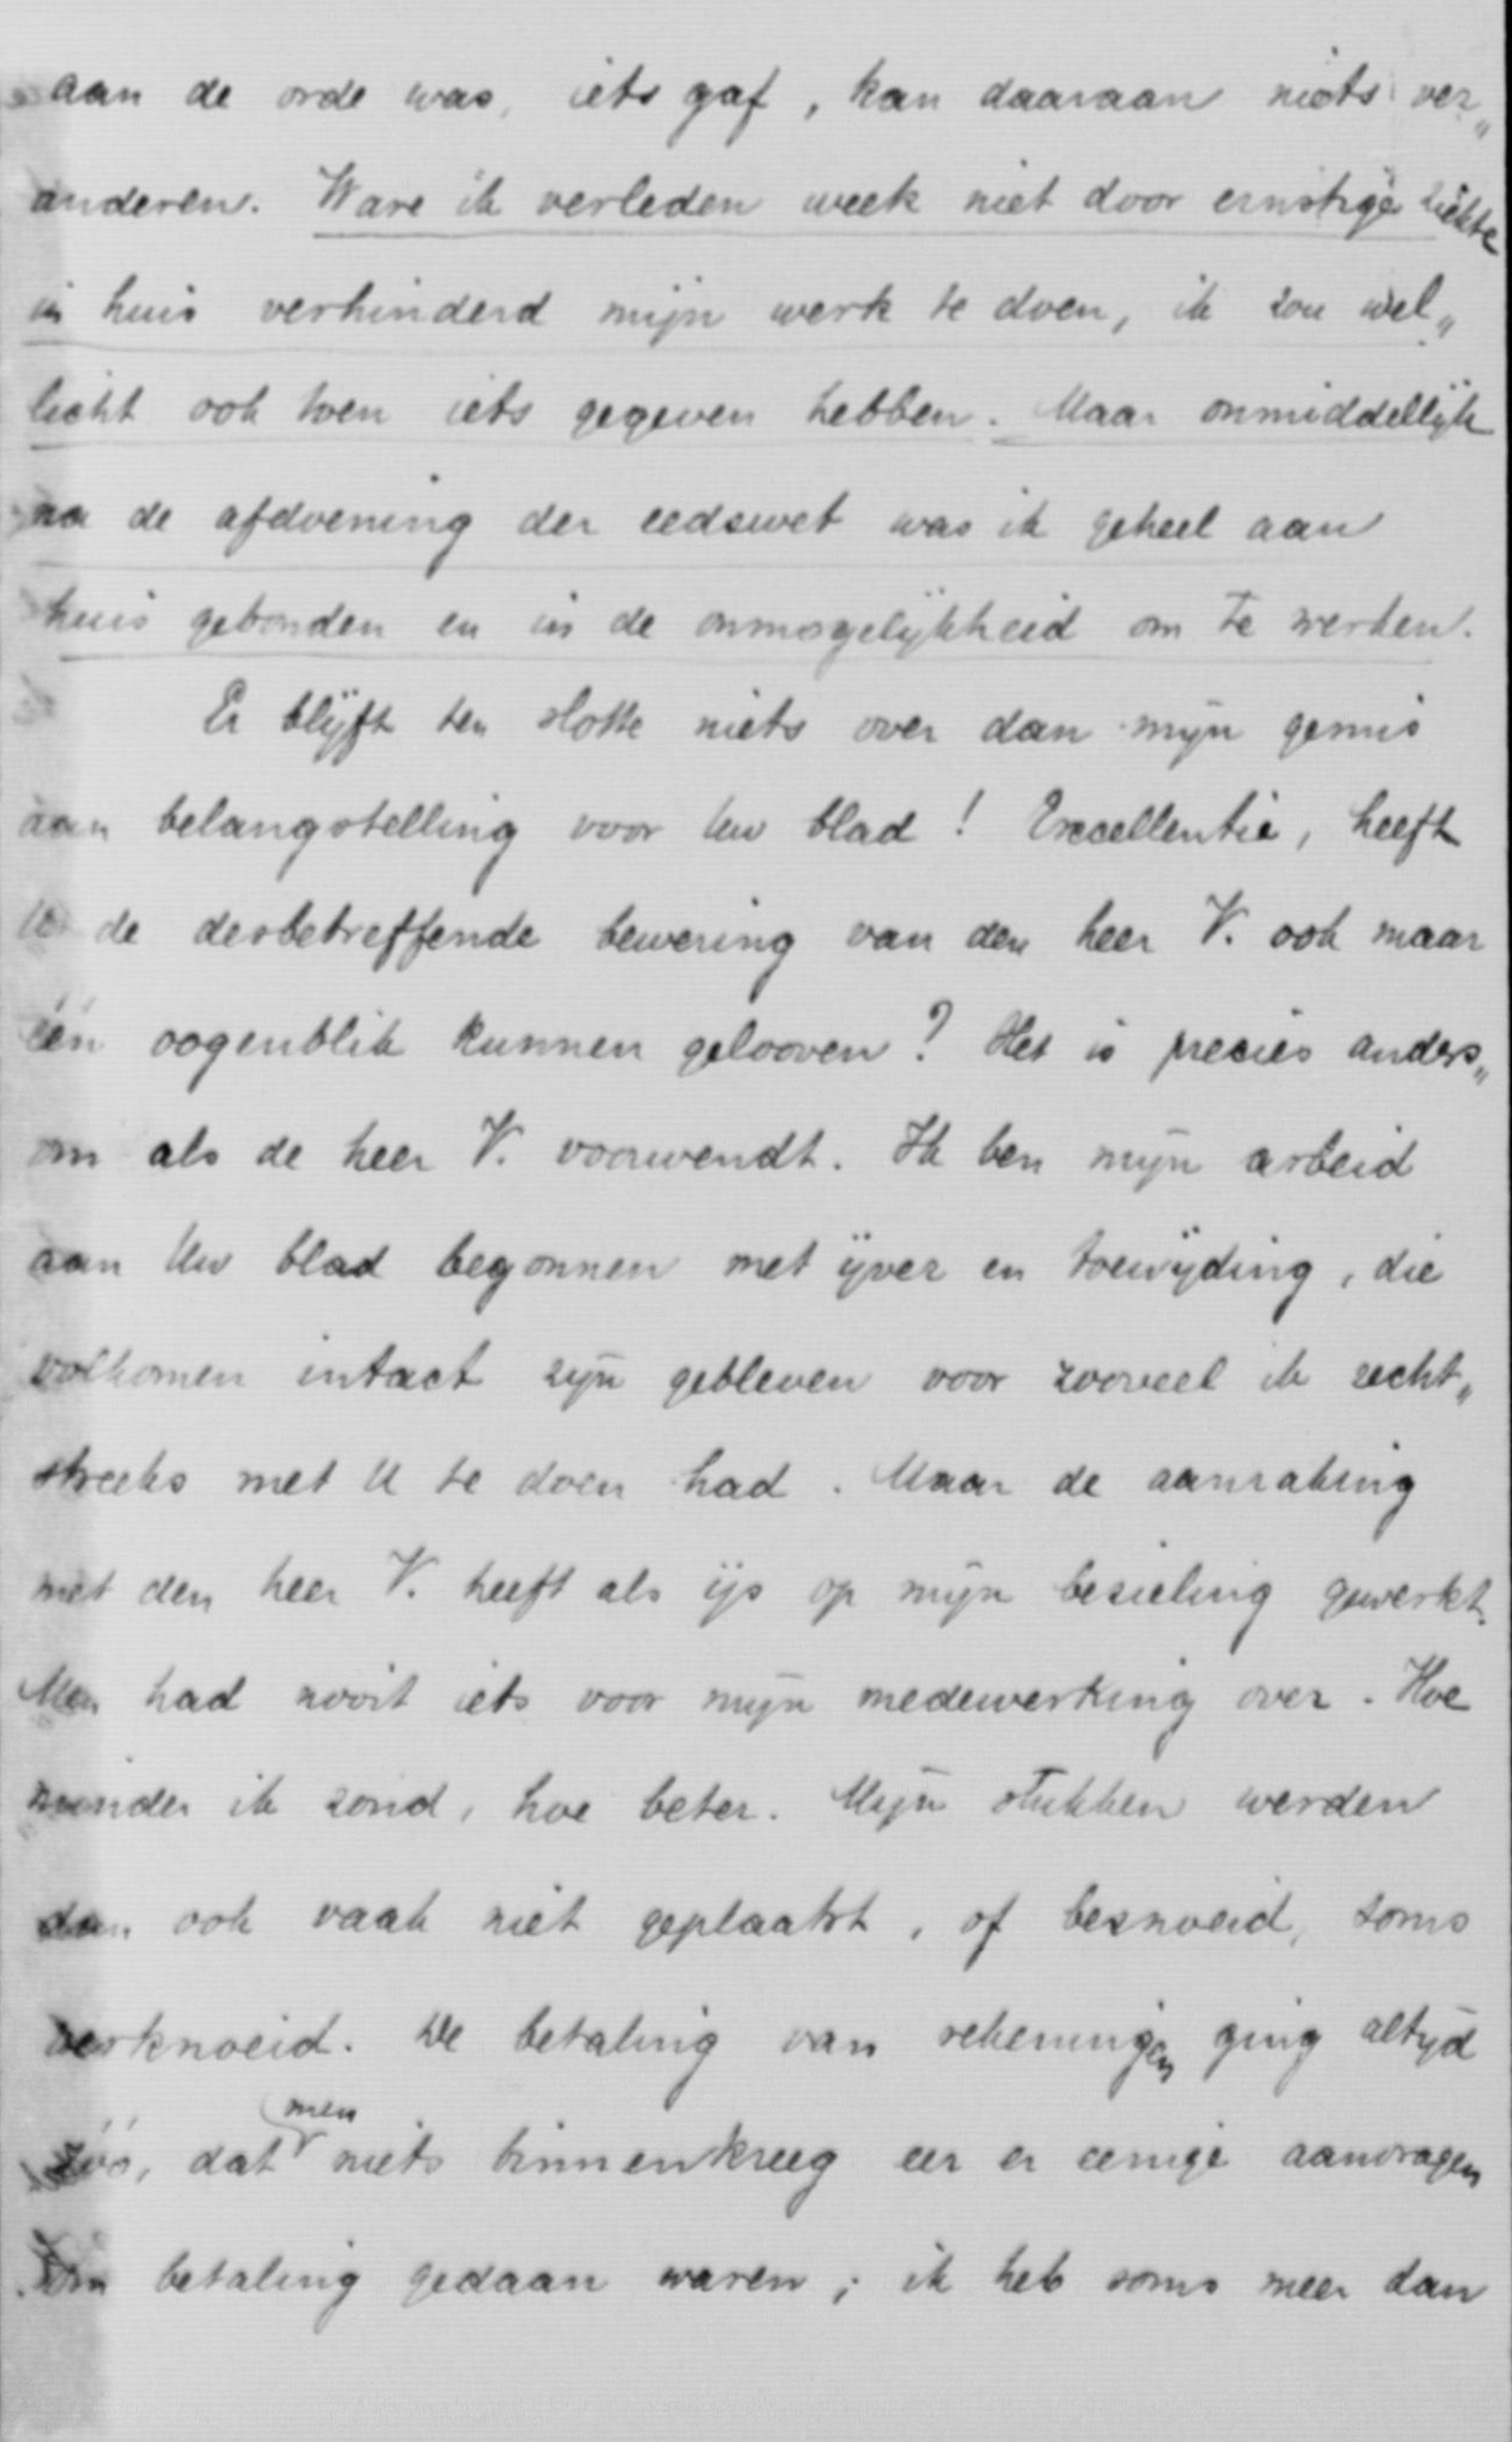 aan de orde was, iets gaf, kan daaraan niets ver„
anderen. Ware ik verleden week niet door ernstige ziekte
in huis verhinderd mijn werk te doen, ik zou wel„
licht ook toen iets gegeven hebben. Maar onmiddellijk
na de afdoening der eedswet was ik geheel aan
huis gebonden en in de onmogelijkheid om te werken.
Er blijft ten slotte niets over dan mijn gemis
aan belangstelling voor Uw blad! Excellentie, heeft
U de desbetreffende bewering van den heer V. ook maar
één oogenblik kunnen gelooven? Het is precies anders„
om als de heer V. voorwendt. Ik ben mijn arbeid
aan Uw blad begonnen met ijver en toewijding, die
volkomen intact zijn gebleven voor zooveel ik recht„
streeks met U te doen had. Maar de aanraking
met den heer V. heeft als ijs op mijn bezieling gewerkt.
Men had nooit iets voor mijn medewerking over. Hoe
minder ik zond, hoe beter. Mijn stukken werden
dan ook vaak niet geplaatst, of besnoeid, soms
verknoeid. De betaling van rekeningen ging altijd
zóó, dat men niets binnenkreeg eer er eenige aanvragen
om betaling gedaan waren; ik heb soms meer dan